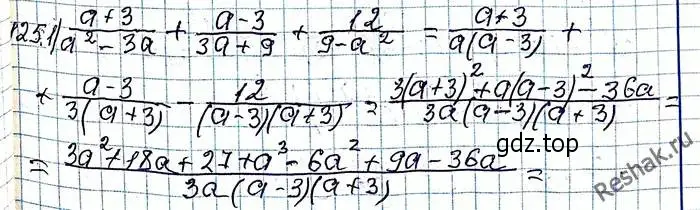 125.1) (a+3)/(a² - 3a) + (a-3)/(3a+9) + 12/(9-a²) = (a+3)/(a(a-3)) +
+ (a-3)/(3(a+3)) - 12/((a-3)(a+3)) = (3(a+3)² + a(a-3)² - 36a)/(3a(a-3)(a+3)) =
= (3a² + 18a + 27 + a³ - 6a² + 9a - 36a)/(3a(a-3)(a+3)) =
гдз.top
Reshak.ru